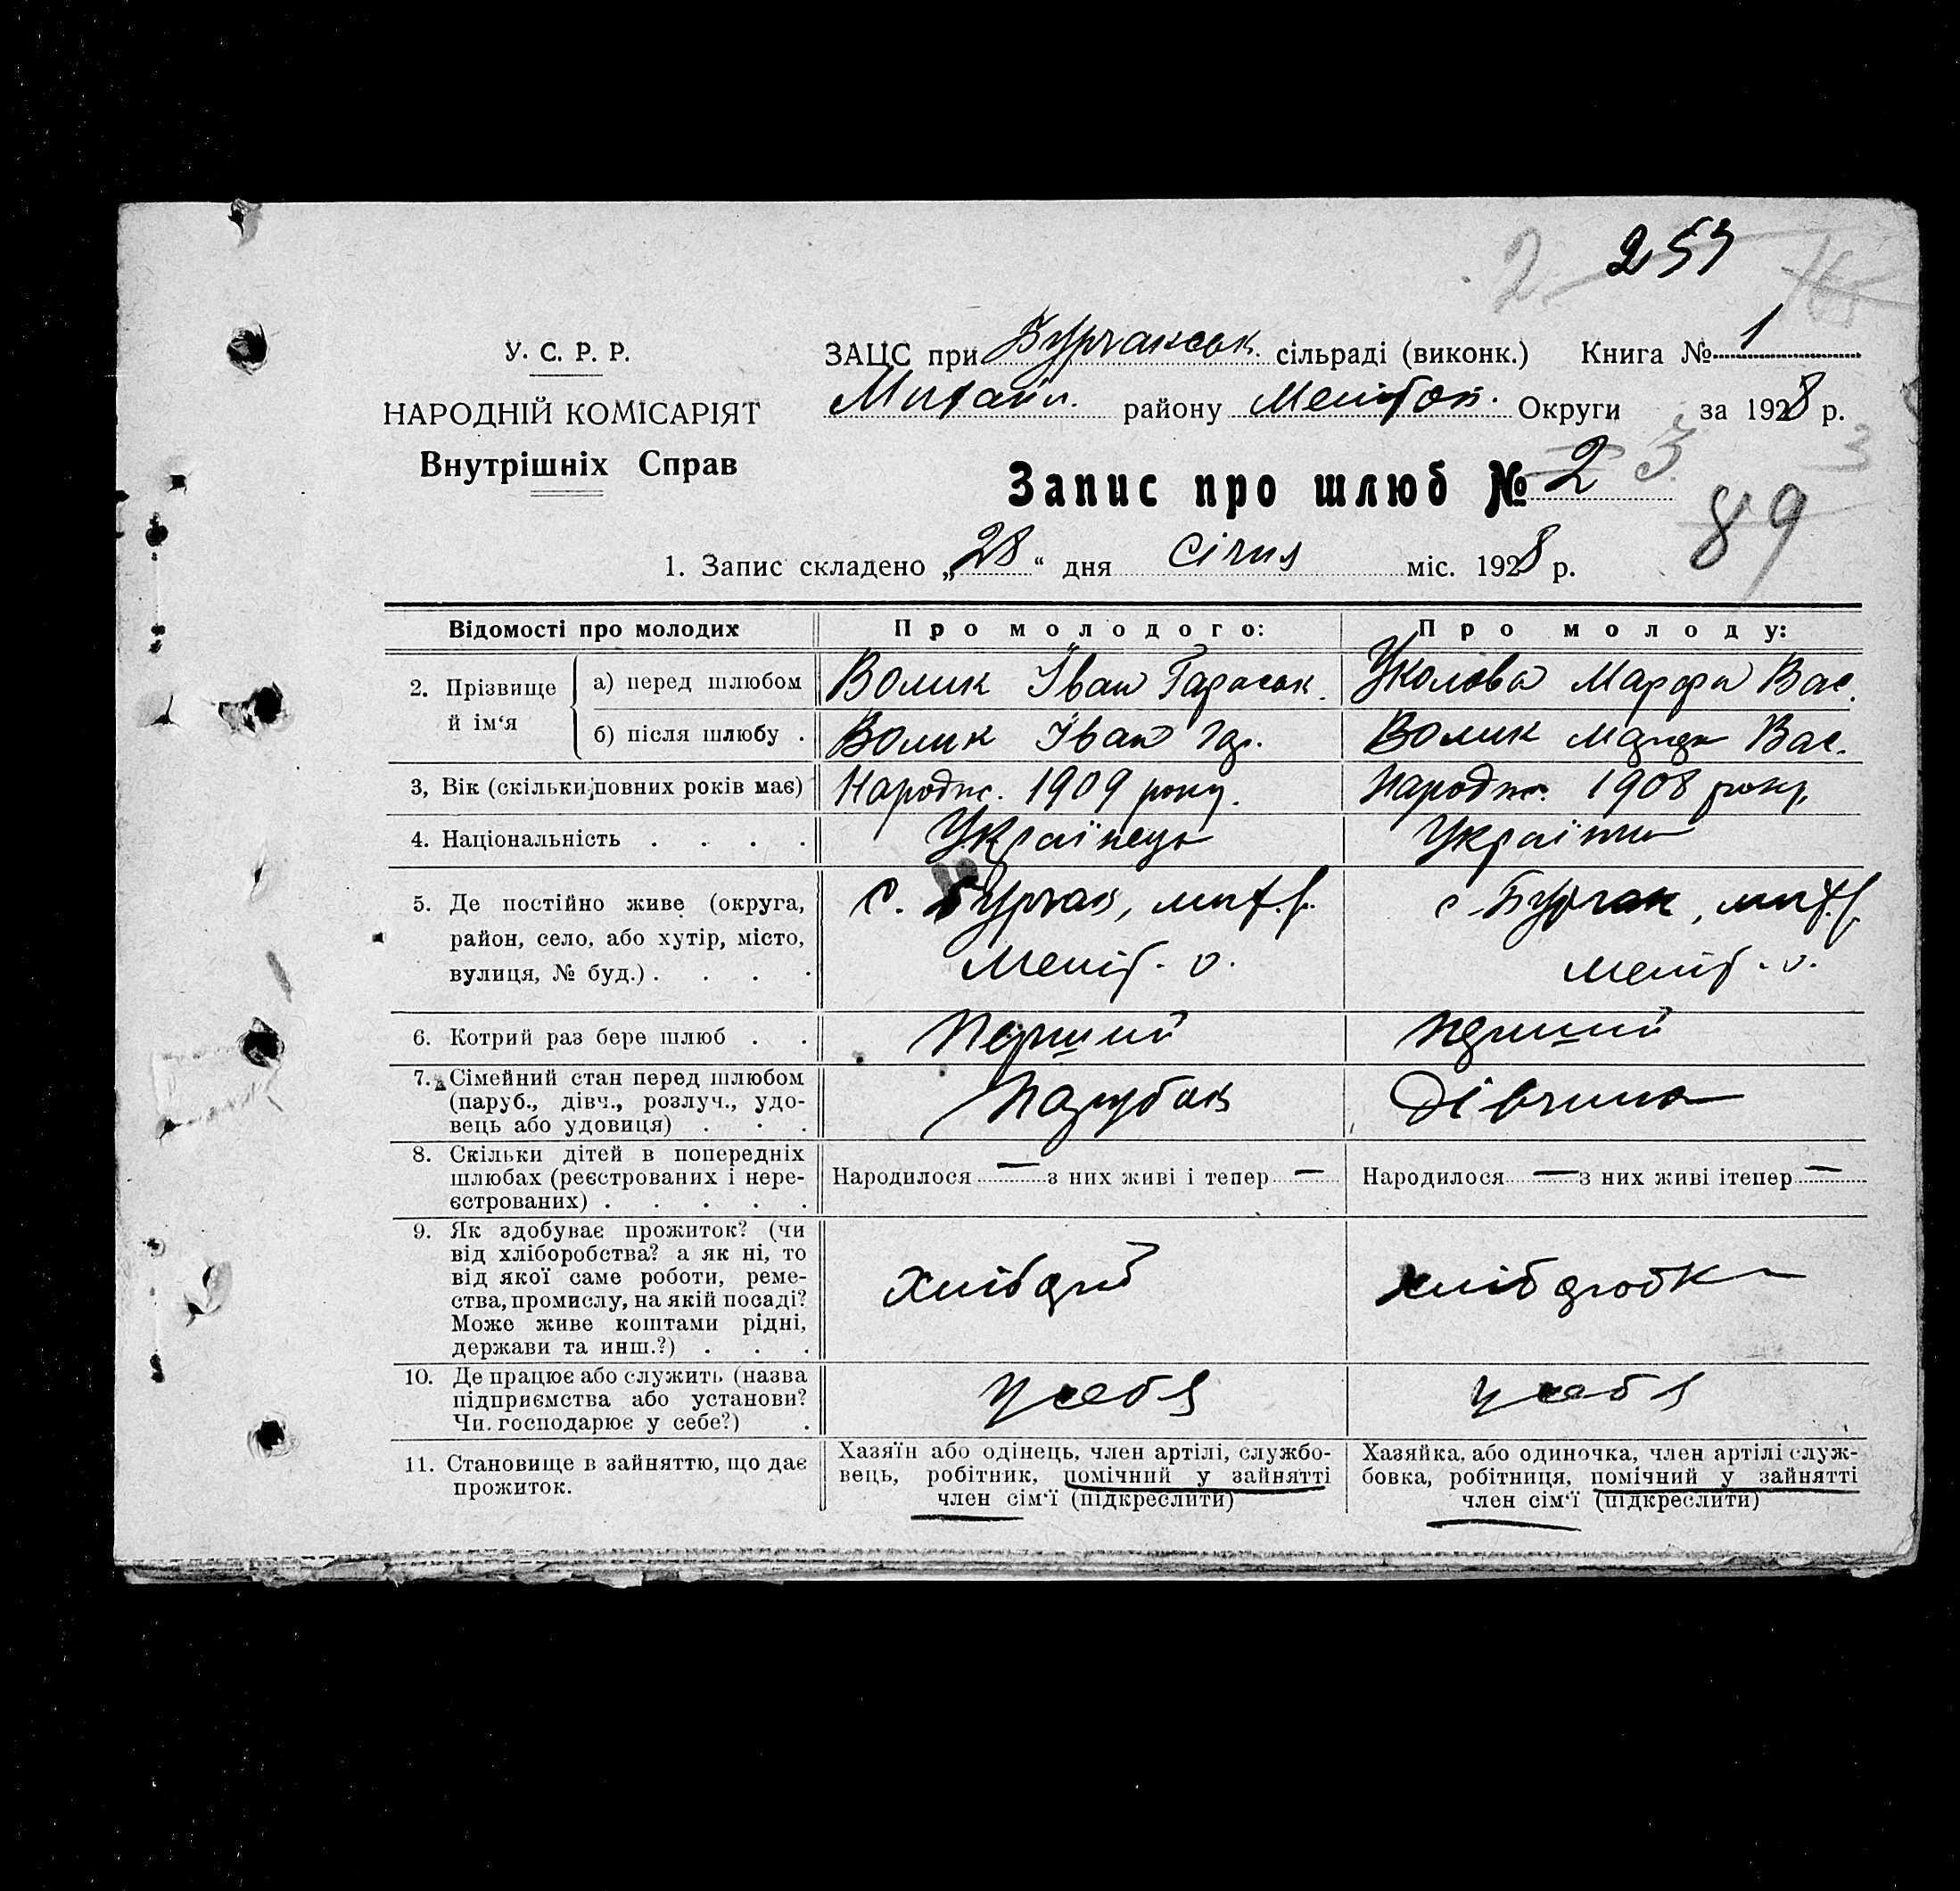 2 253 165
У. С. Р. Р.
НАРОДНІЙ КОМІСАРІЯТ
Внутрішніх Справ
ЗАЦС при Бурчакськ. сільраді (виконк.) Книга № 1
Михайл. району Мелітоп. Округи за 1928 р.
3
Запис про шлюб № 2 3.
89
1. Запис складено „28“ дня Січня міс. 1928 р.
Відомості про молодих Про молодого: Про молоду:
2. Прізвище й ім‘я а) перед шлюбом Волик Іван Тараськ. Уколова Марфа Вас.
б) після шлюбу . Волик Іван Тар. Волик Марфа Вас.
3, Вік (скільки повних років має) Народж. 1909 року. Народж. 1908 року.
4. Національність . . . . Українець Українка
5. Де постійно живе (округа, с. Бурчак, мих. р. с. Бурчак, мих. р.
район, село, або хутір, місто, Меліт. о. меліт. о.
вулиця, № буд.) . . . .
6. Котрий раз бере шлюб . . Перший перший
7. Сімейний стан перед шлюбом Парубок Дівчина
(паруб., дівч., розлуч., удо-
вець або удовиця) . . .
8. Скільки дітей в попередніх
шлюбах (реєстрованих і нере- Народилося — з них живі і тепер — Народилося — з них живі ітепер —
єстрованих) . . . . .
9. Як здобуває прожиток? (чи
від хліборобства? а як ні, то
від якої саме роботи, реме- хлібороб хліборобка
ства, промислу, на якій посаді?
Може живе коштами рідні,
держави та инш.?) . . .
10. Де працює або служить (назва у себя у себя
підприємства або установи?
Чи. господарює у себе?) .
11. Становище в зайняттю, що дає
прожиток.
Хазяїн або одінець, член артілі, службо-
вець, робітник, помічний у зайнятті
член сім‘ї (підкреслити)
Хазяйка, або одиночка, член артілі служ-
бовка, робітниця, помічний у зайнятті
член сім‘ї (підкреслити)